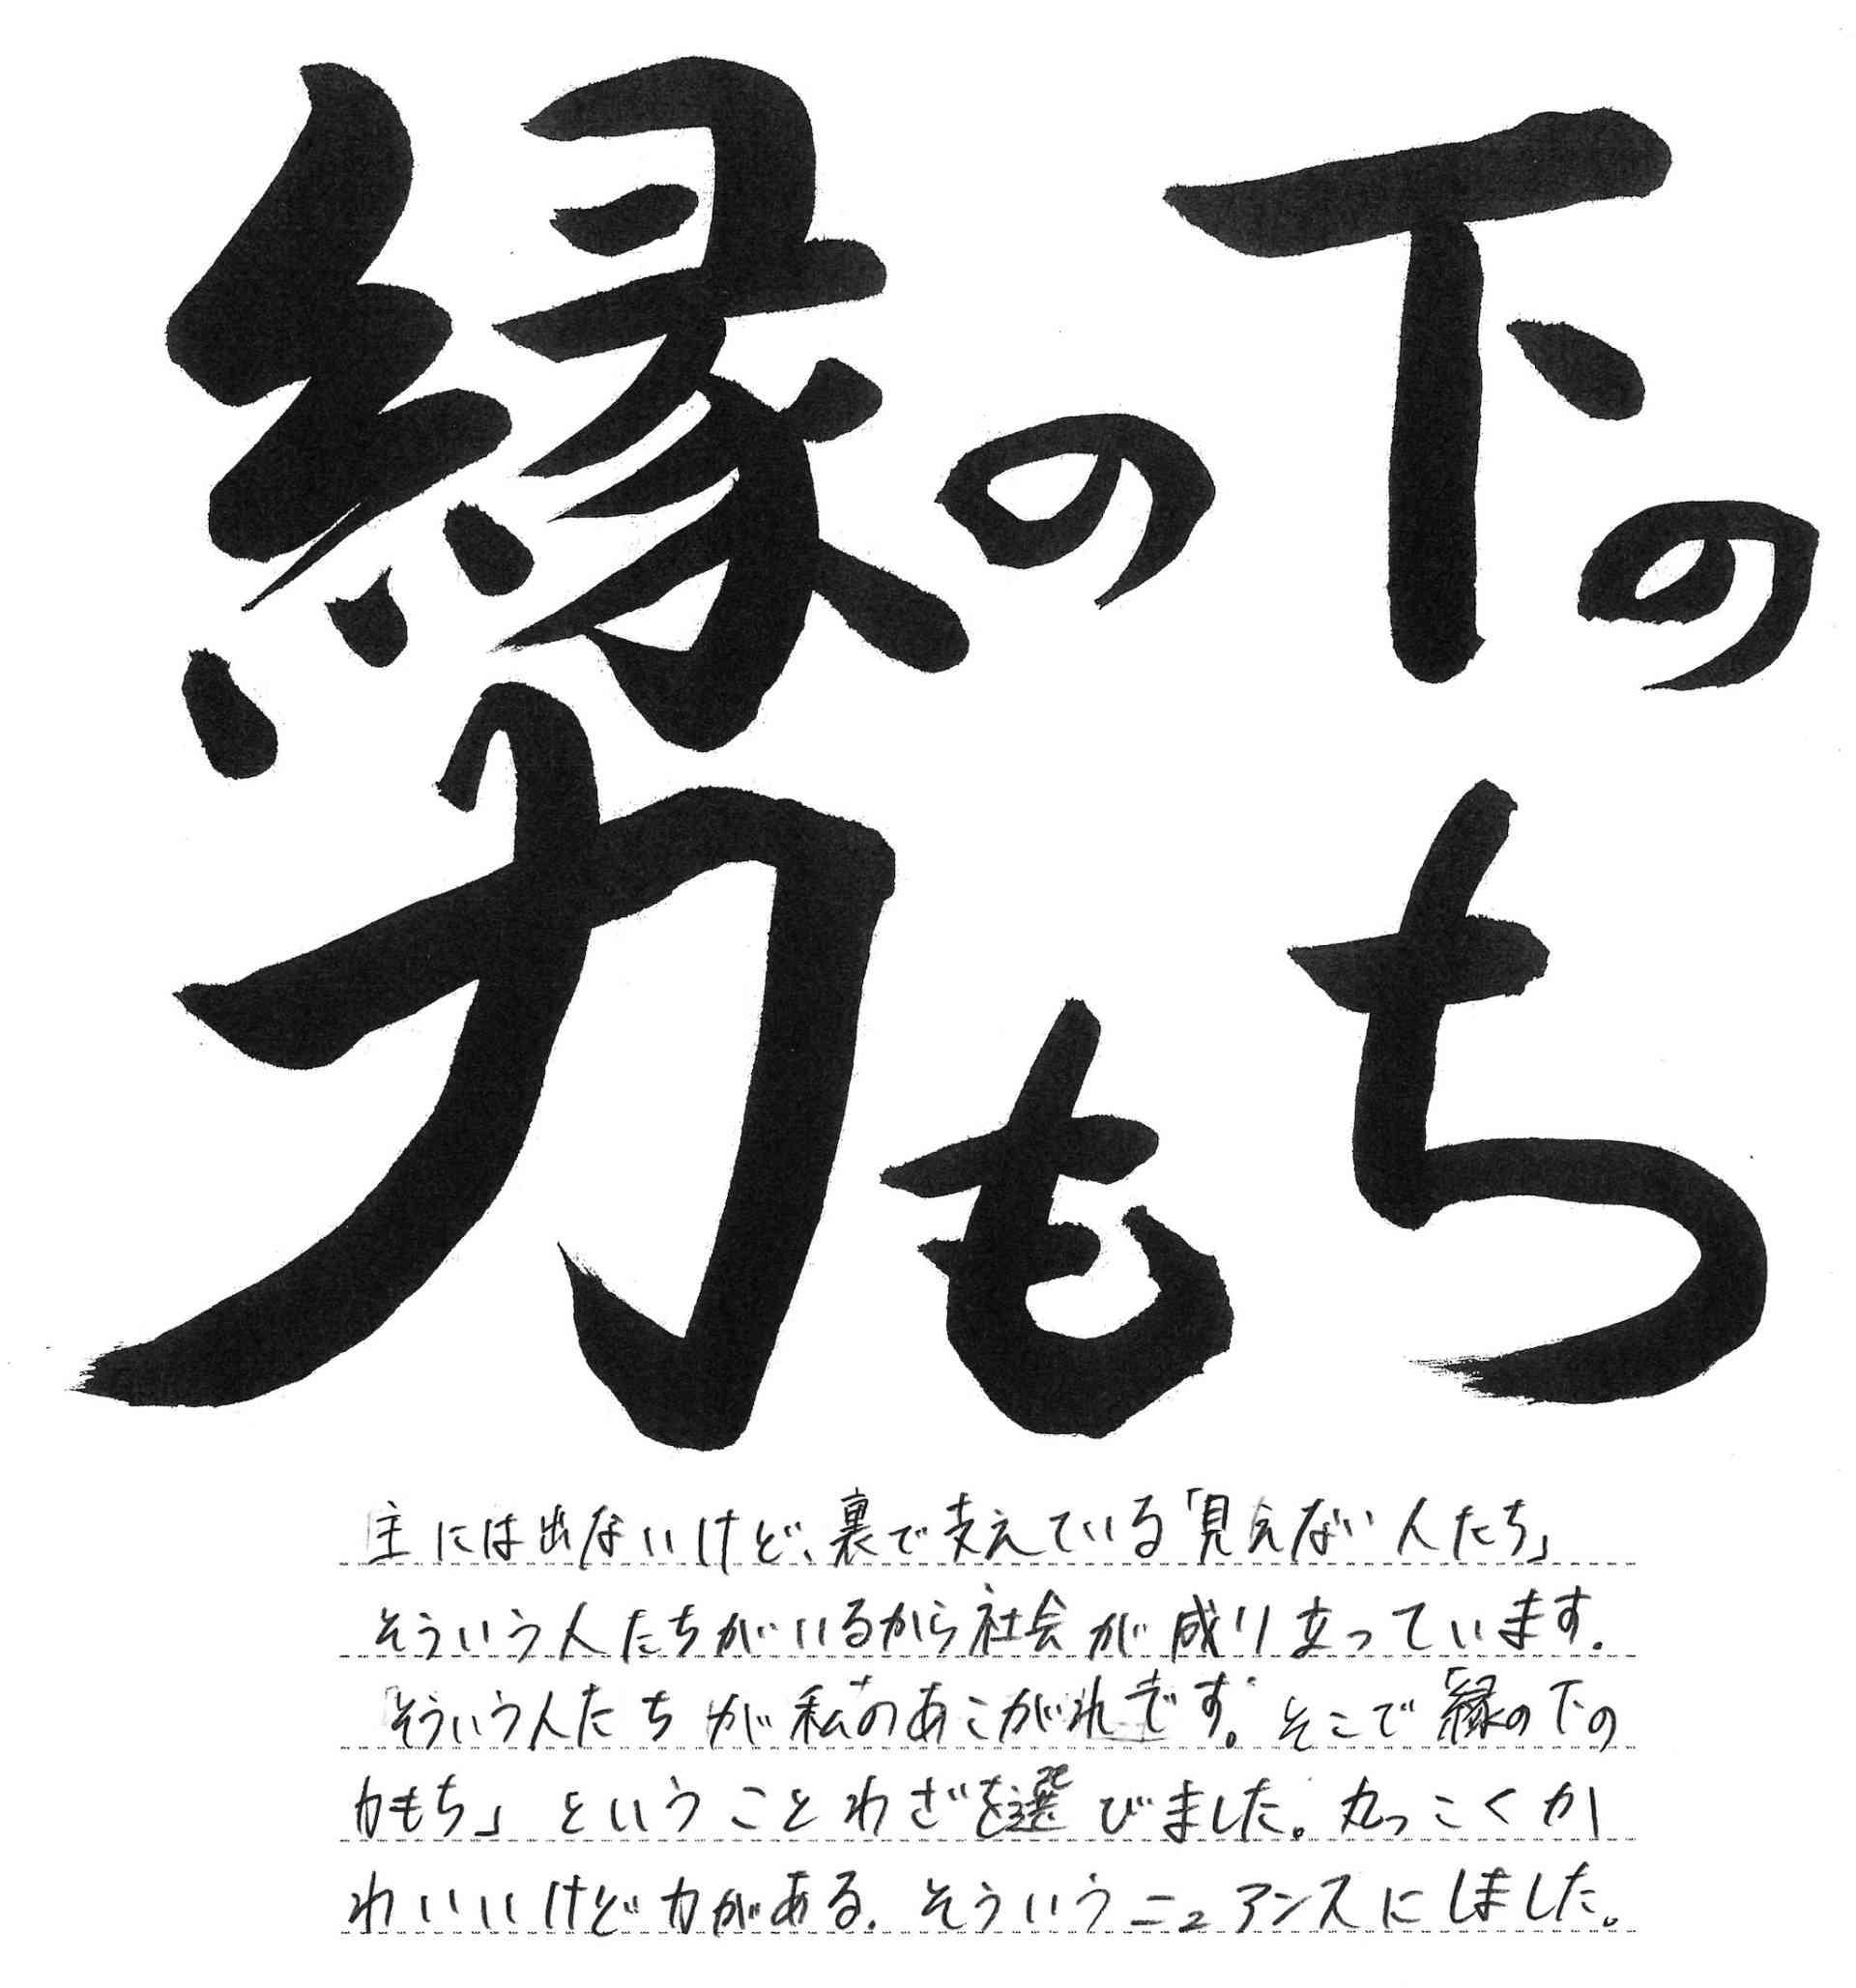 縁の下の
力もち
主には出ないけど、裏で支えている「見えない人たち」
そういう人たちがいるから社会が成り立っています。
そういう人たちが私のあこがれです。そこで「縁の下の
力もち」ということわざを選びました。丸っこくか
わいいけど力がある。そういうニュアンスにしました。